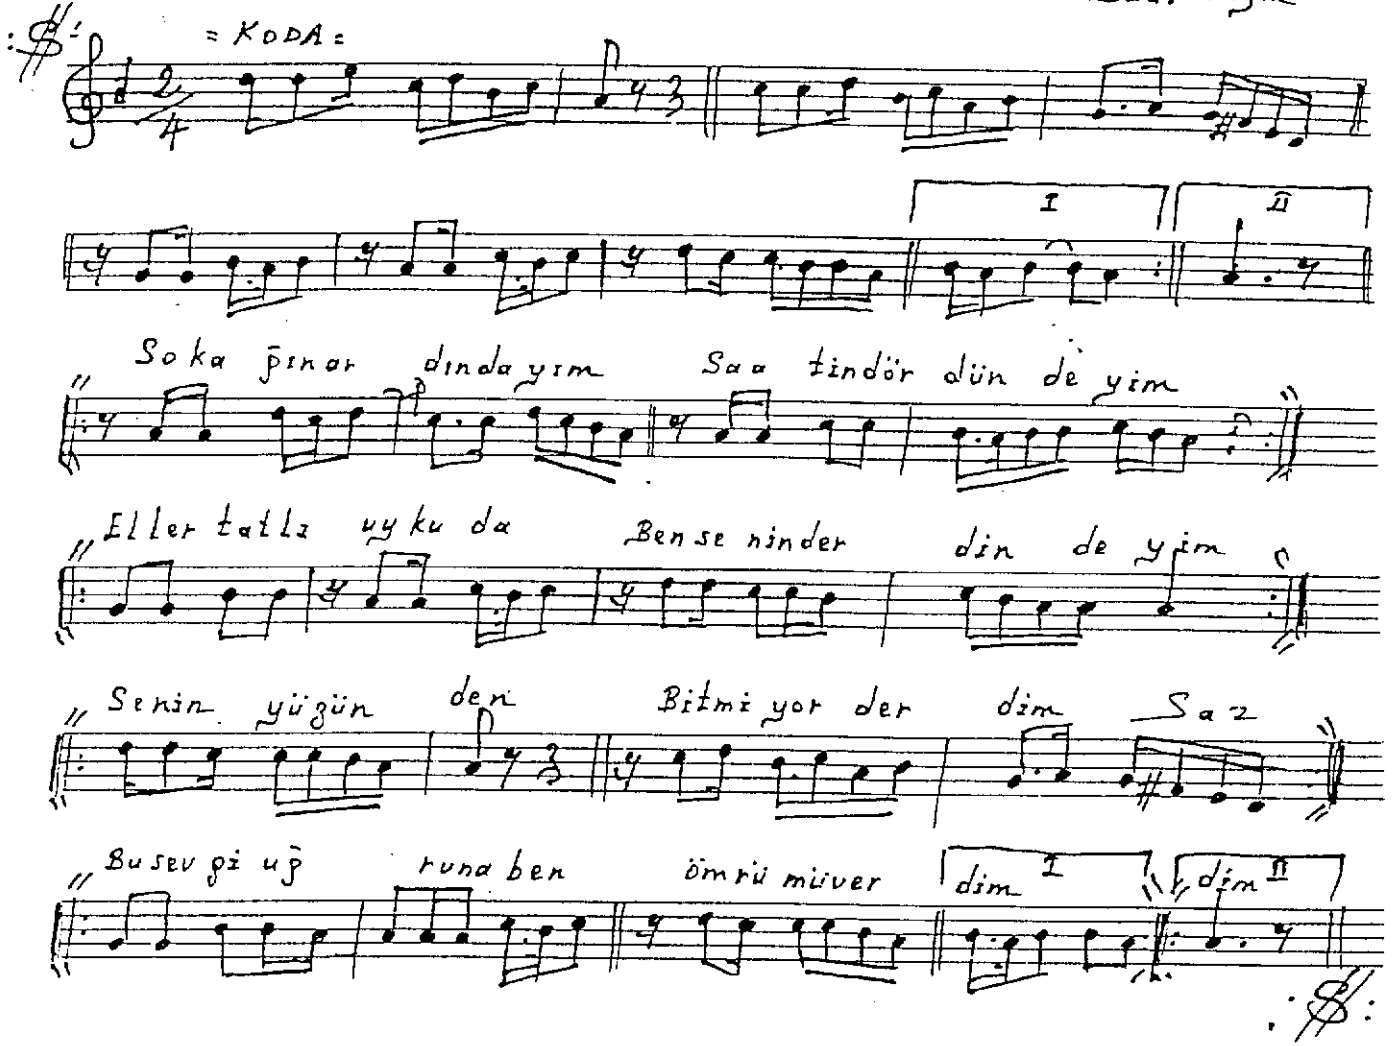 = KODA =
2
4
I II
So ka ğınar dında yım Saa tindör dün de yim
Eller tatlı uy ku da Ben se ninder din de yim
Senin yüzün den Bitmi yor der dim Saz
Bu sev gi uğ runa ben ömrü müver dim I dim II